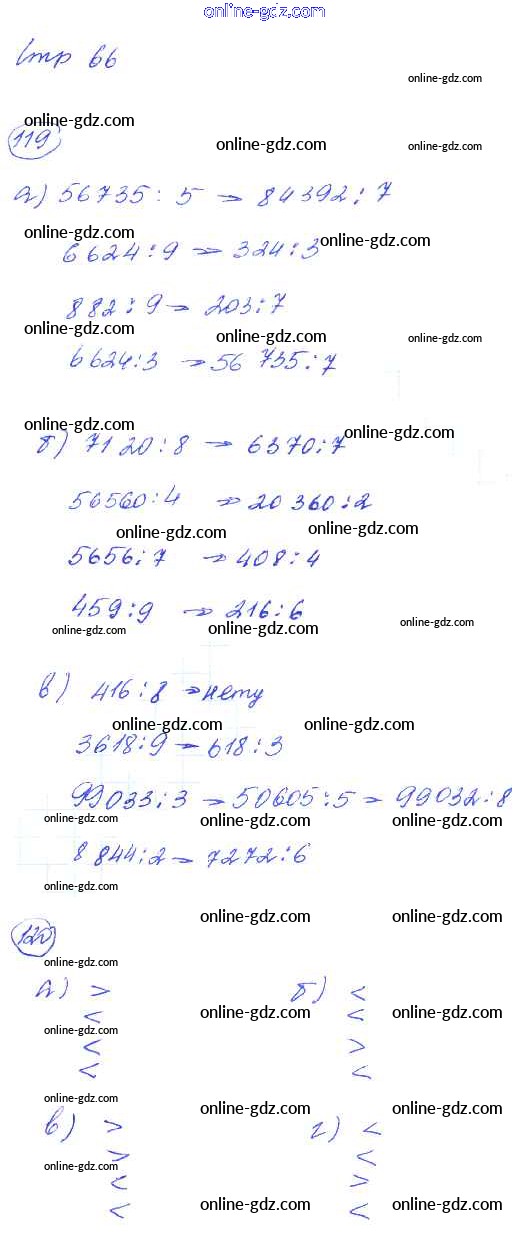 online-gdz.com
Стр 66
online-gdz.com
online-gdz.com
119 online-gdz.com online-gdz.com
а) 56735 : 5 → 84392 : 7
online-gdz.com online-gdz.com
6624 : 9 → 324 : 3
882 : 9 → 203 : 7
online-gdz.com online-gdz.com online-gdz.com
6624 : 3 → 56 735 : 7
online-gdz.com online-gdz.com
б) 7120 : 8 → 6370 : 7
56560 : 4 → 20 360 : 2
online-gdz.com online-gdz.com
5656 : 7 → 408 : 4
459 : 9 → 216 : 6
online-gdz.com online-gdz.com online-gdz.com
в) 416 : 8 → нету
online-gdz.com online-gdz.com
3618 : 9 → 618 : 3
99033 : 3 → 50605 : 5 → 99032 : 8
online-gdz.com online-gdz.com online-gdz.com
8844 : 2 → 7272 : 6
online-gdz.com
120 online-gdz.com online-gdz.com
online-gdz.com
а) > б) <
< <
online-gdz.com online-gdz.com online-gdz.com
< >
< <
online-gdz.com online-gdz.com online-gdz.com
в) > г) <
> <
online-gdz.com
< >
< <
online-gdz.com online-gdz.com